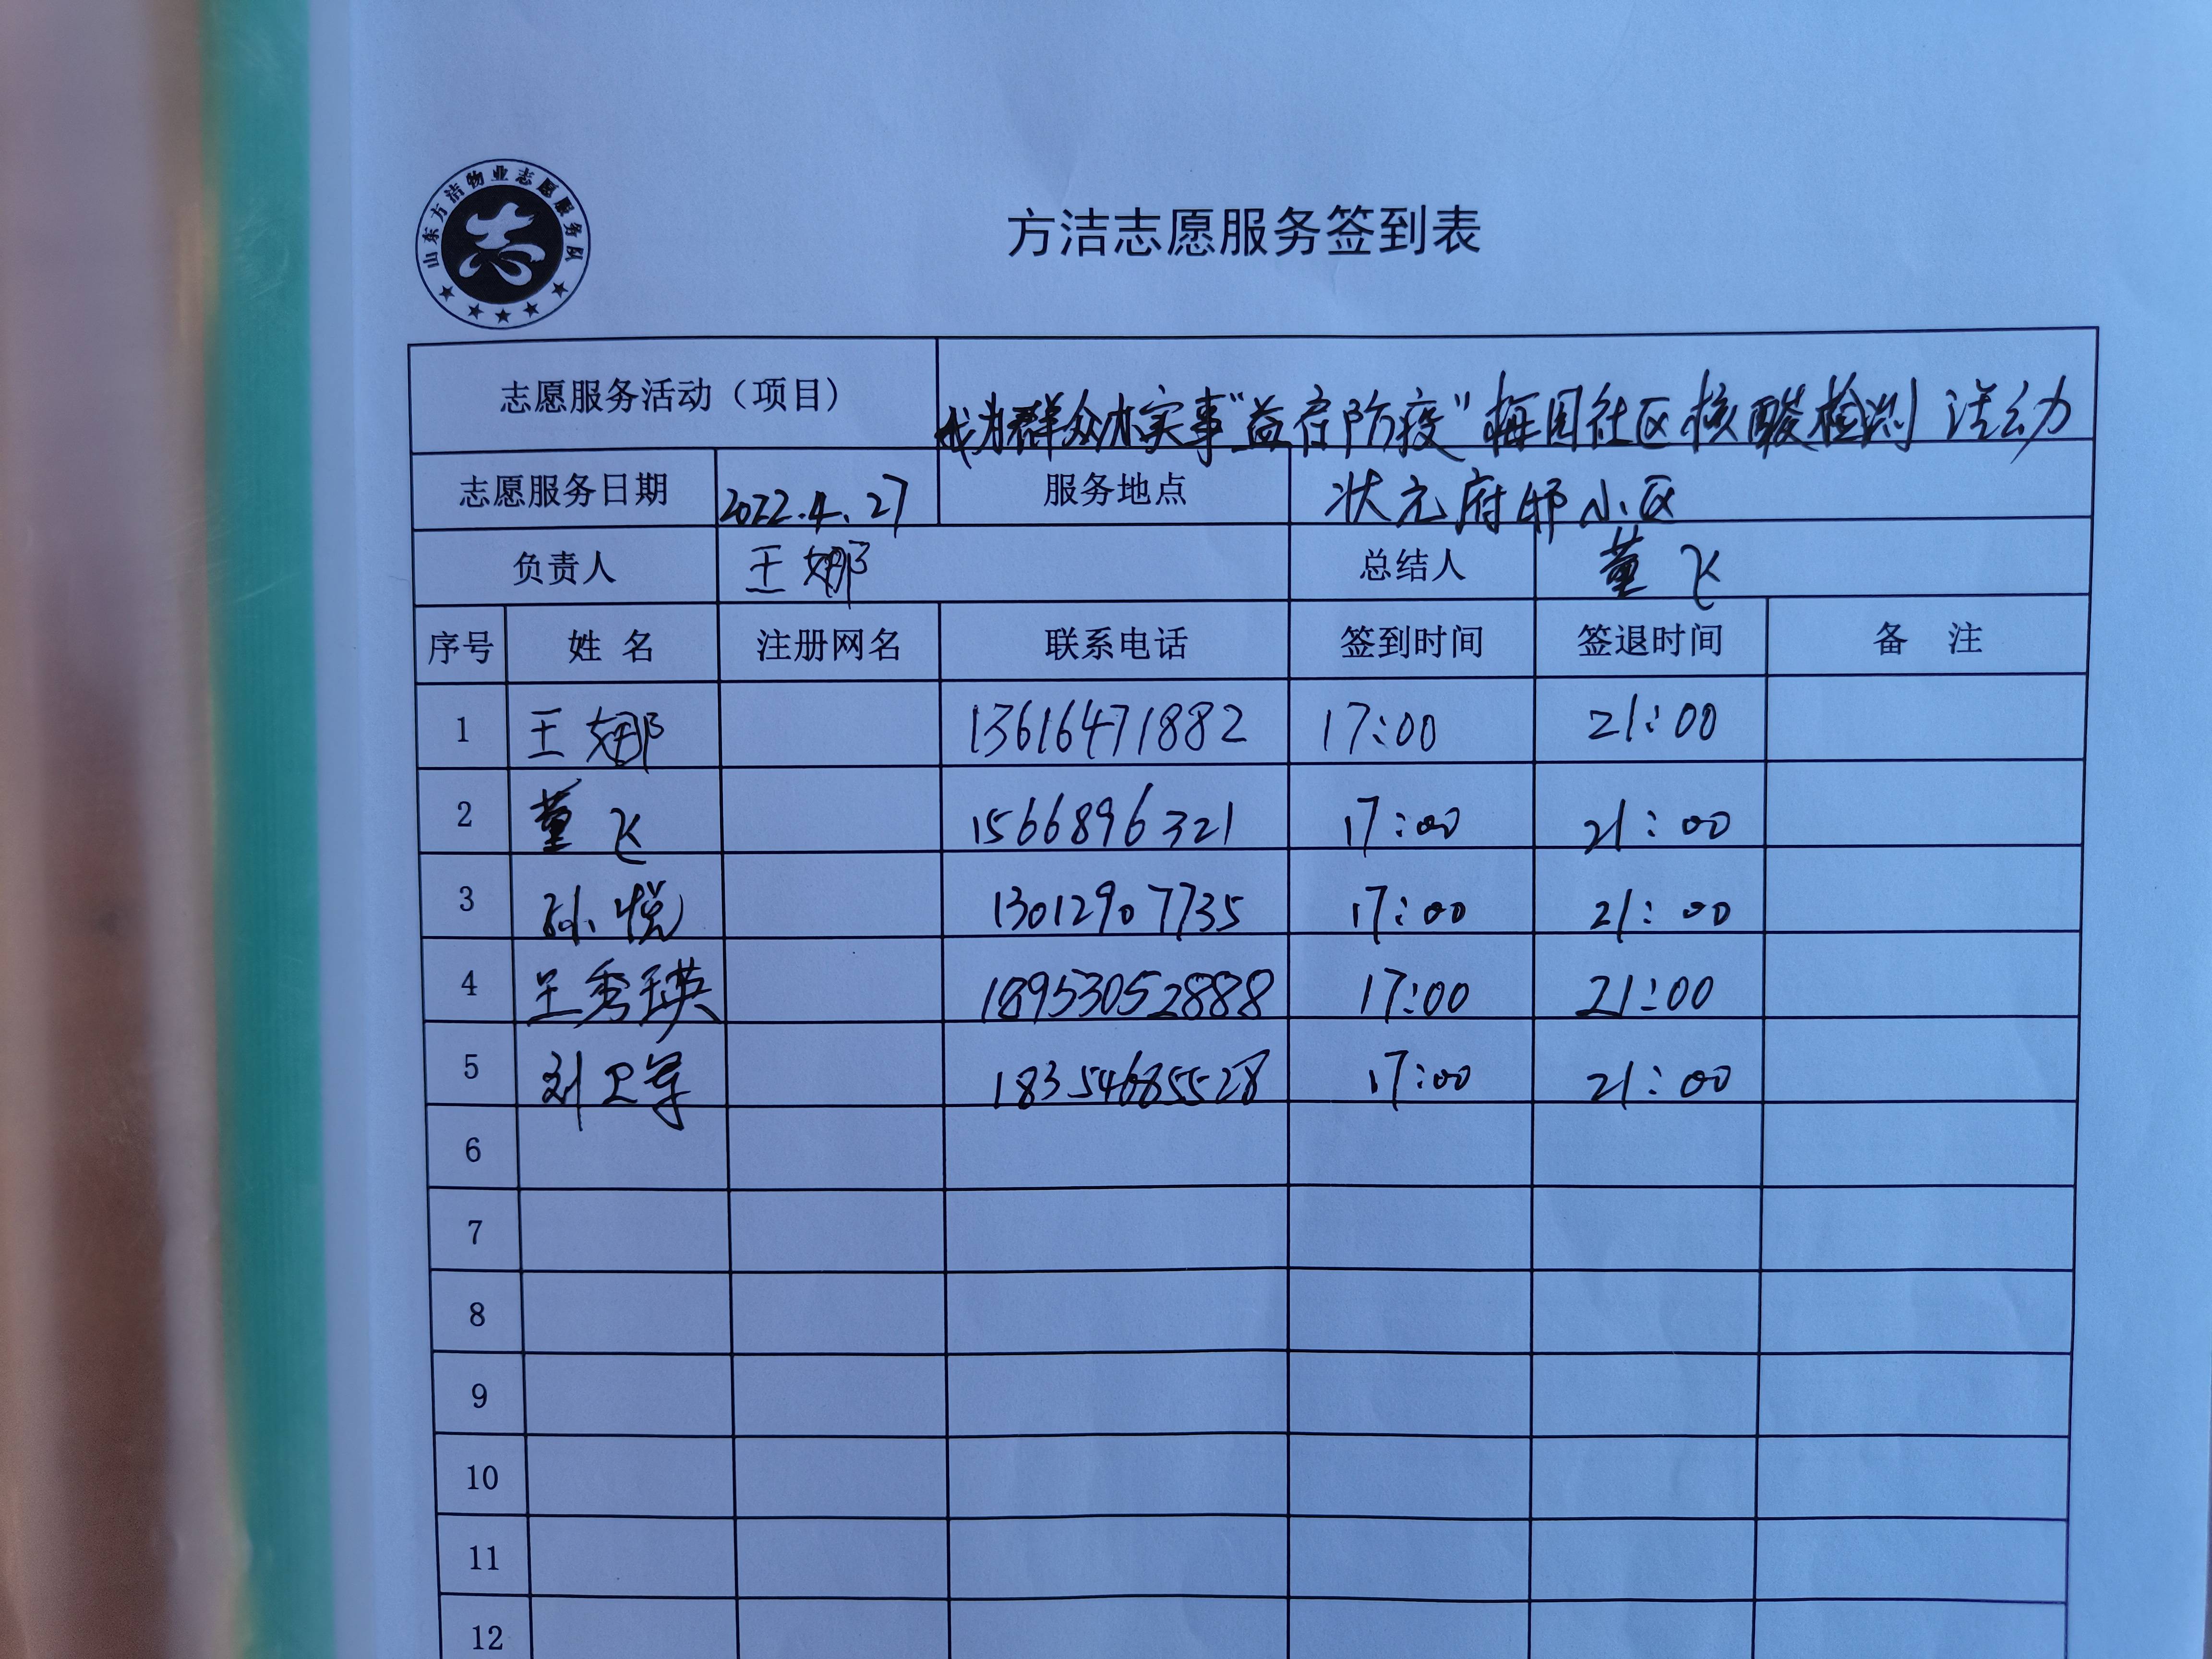 山东方洁物业志愿服务队
方洁志愿服务签到表
志愿服务活动（项目） 我为群众办实事“益行防疫”梅园社区核酸检测活动
志愿服务日期 2022.4.27 服务地点 状元府邸小区
负责人 王娜 总结人 董飞
序号 姓名 注册网名 联系电话 签到时间 签退时间 备注
1 王娜 13616471882 17:00 21:00
2 董飞 1566896321 17:00 21:00
3 孙悦 13012907735 17:00 21:00
4 王秀瑛 18953052888 17:00 21:00
5 刘卫军 18354685528 17:00 21:00
6
7
8
9
10
11
12